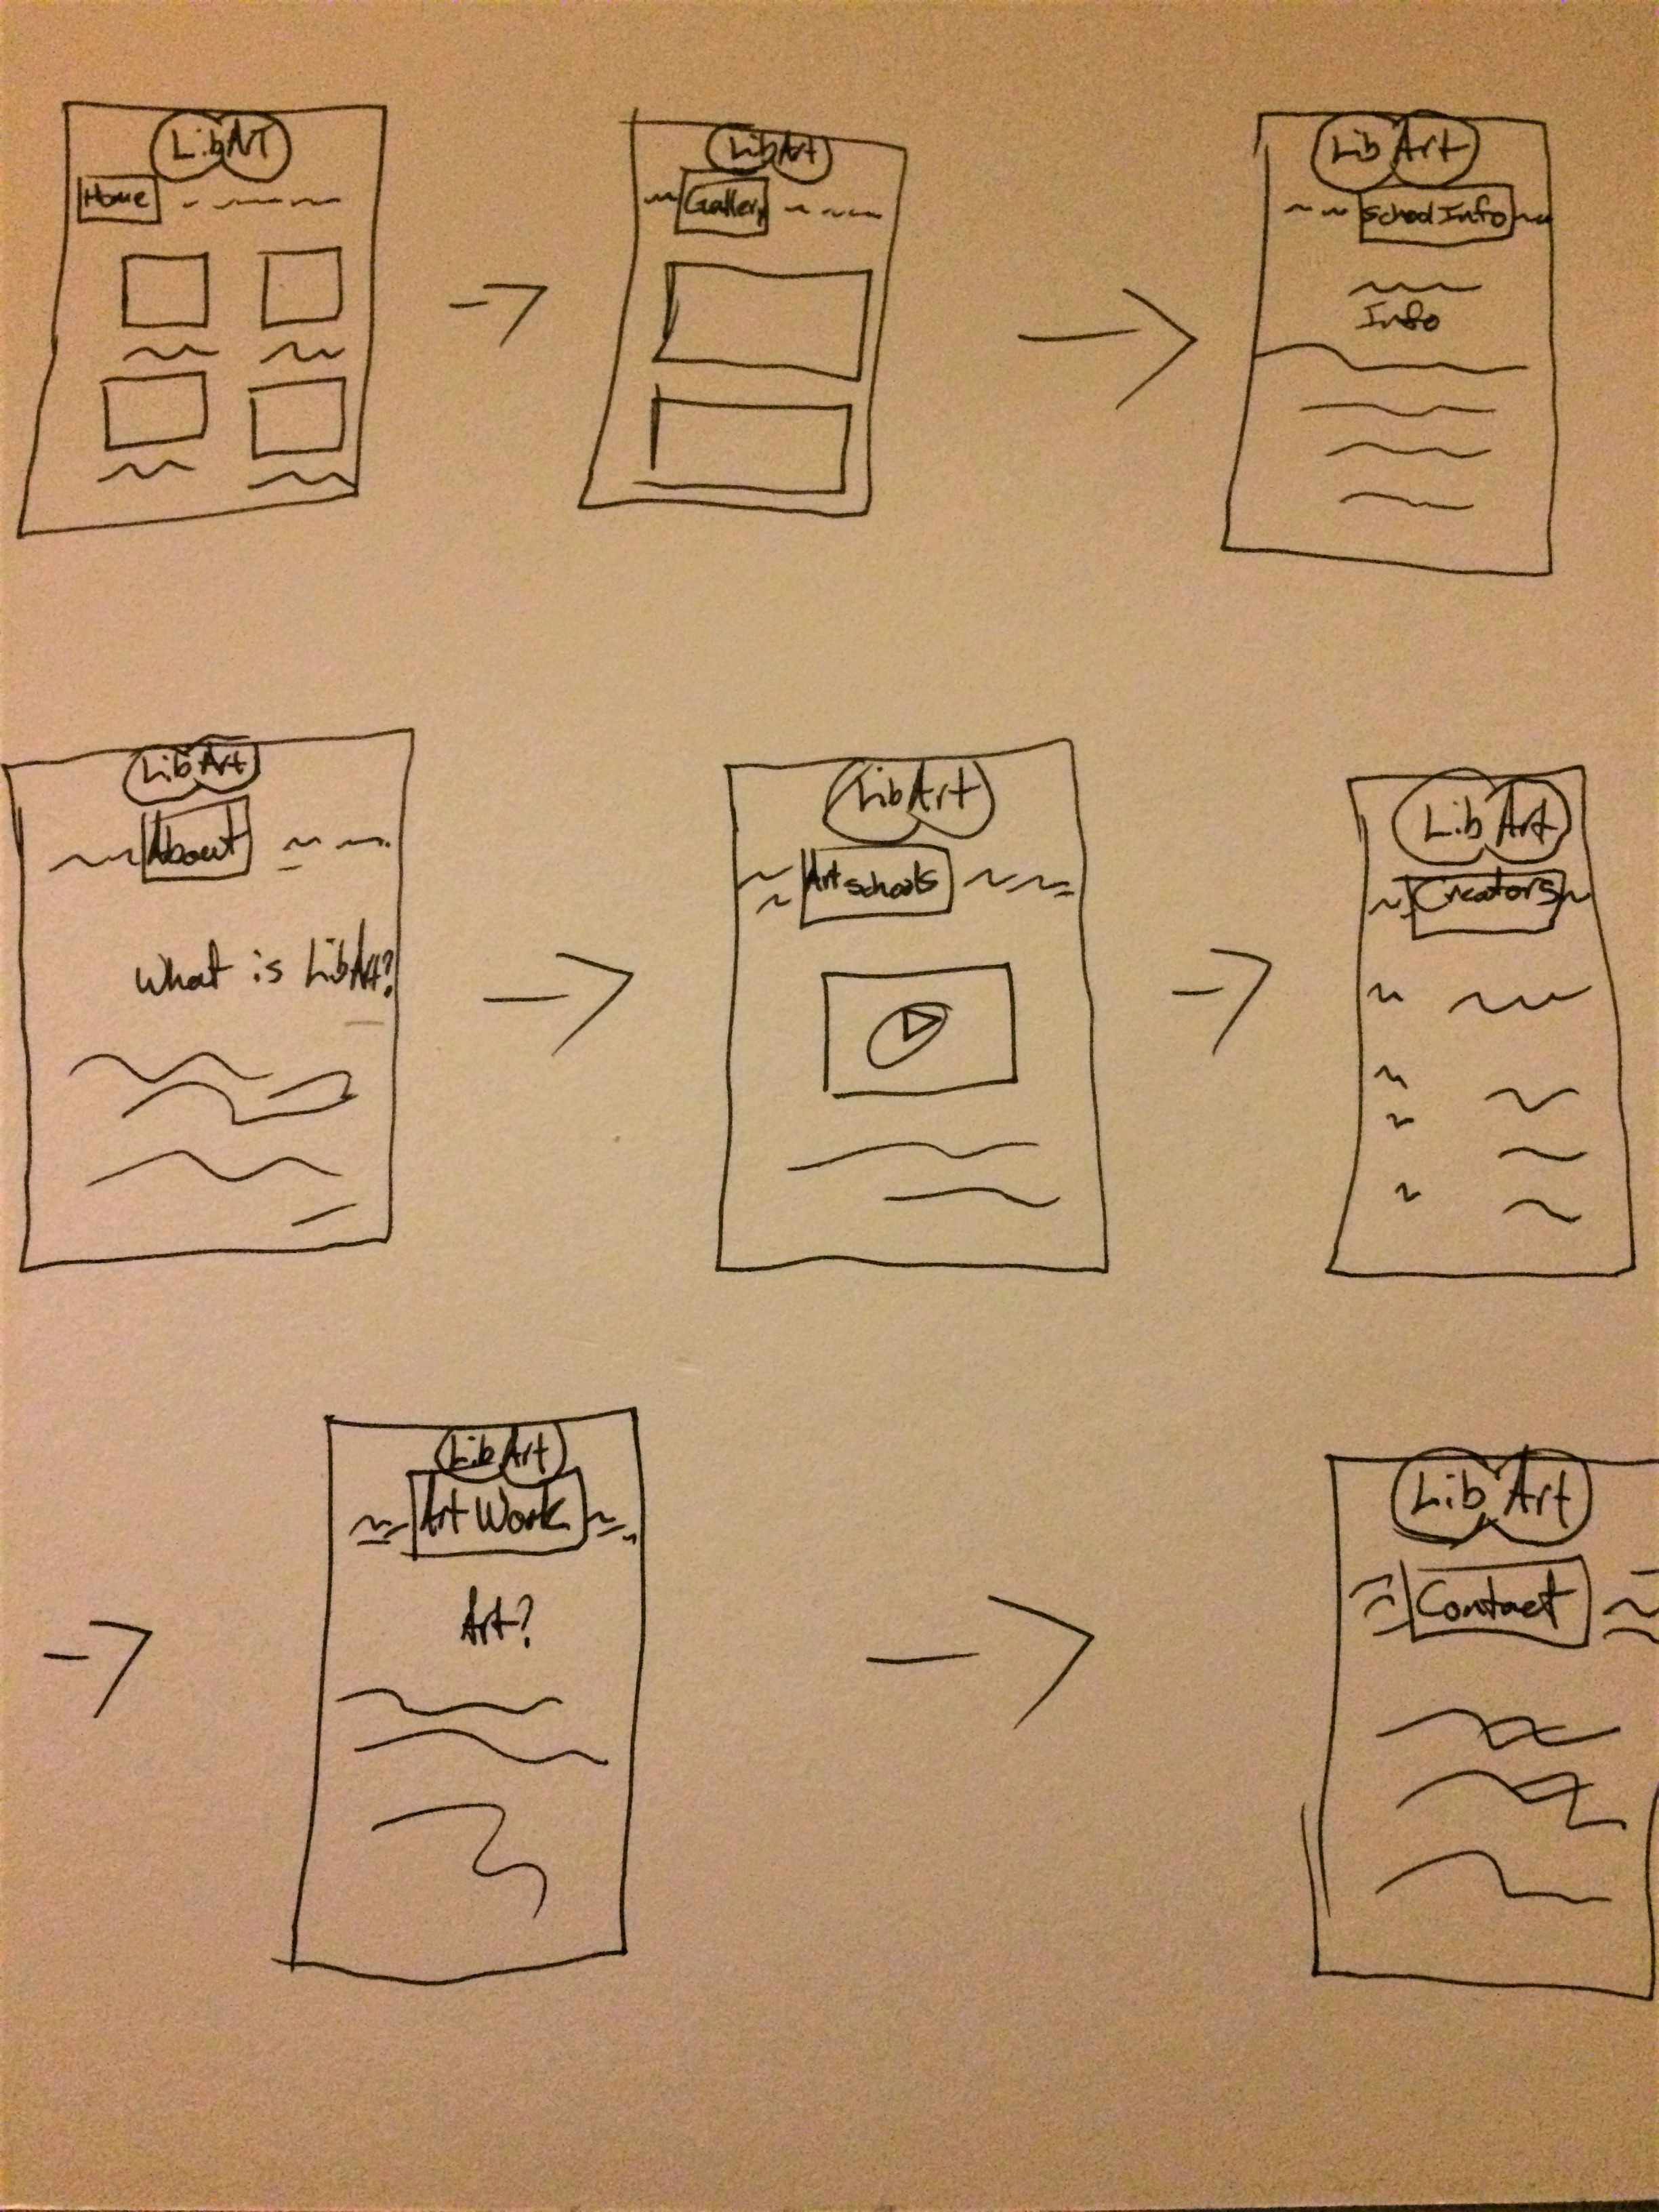 LibArt
Home
LibArt
Gallery
Lib Art
School Info
Info
LibArt
About
What is LibArt?
LibArt
Art schools
Lib Art
Creators
Lib Art
Art Work
Art?
Lib Art
Contact